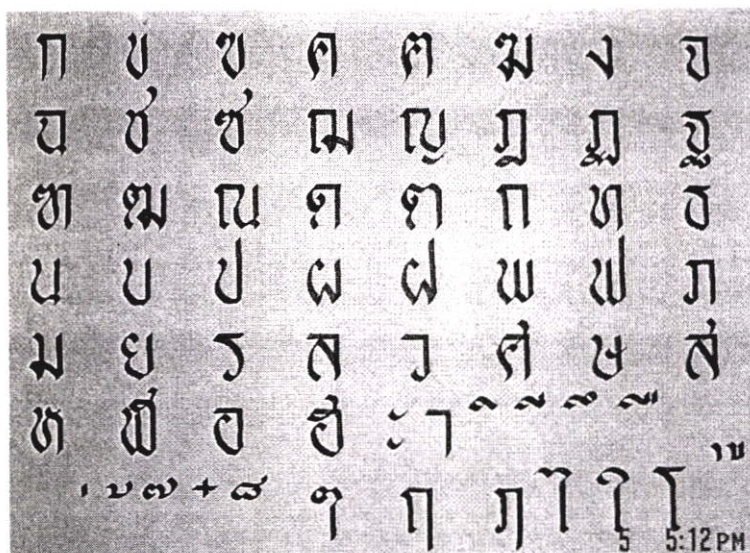 ก ข ฃ ค ฅ ฆ ง จ
ฉ ช ซ ฌ ญ ฎ ฏ ฐ
ฑ ฒ ณ ด ต ถ ท ธ
น บ ป ผ ฝ พ ฟ ภ
ม ย ร ล ว ศ ษ ส
ห ฬ อ ฮ ะ า ิ ี ึ ื
ุ ู
่ ้ ๊ ๋ ็ ๆ ฤ ฦ ไ ใ โ
5 5:12 PM